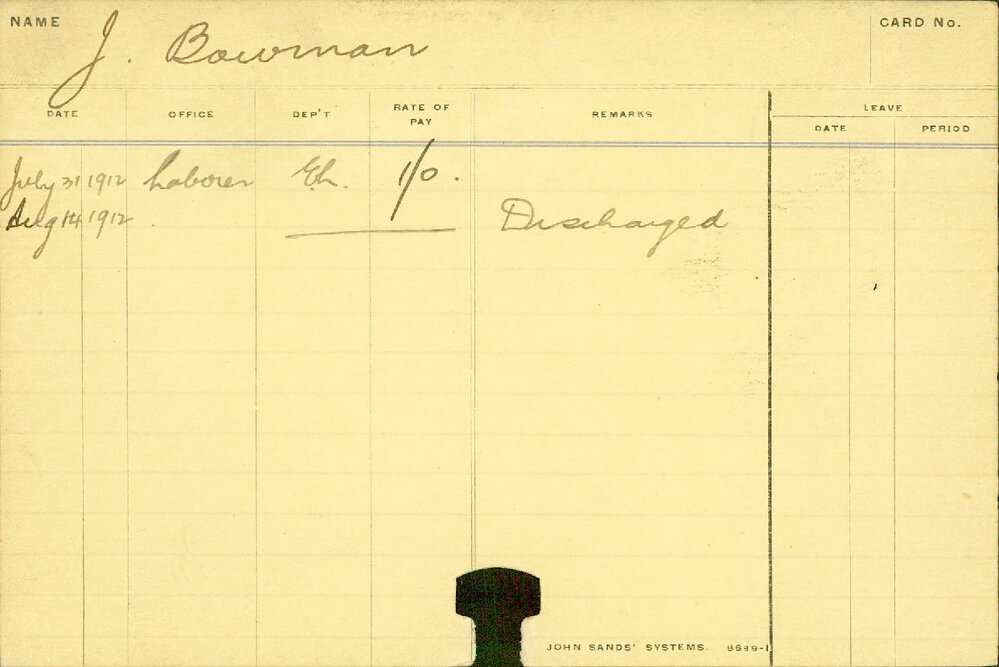 NAME J. Bowman CARD No.
DATE OFFICE DEP'T RATE OF PAY REMARKS LEAVE
DATE PERIOD
July 31 1912 Laborer 1/0.
Aug 14 1912 Discharged
JOHN SANDS' SYSTEMS.